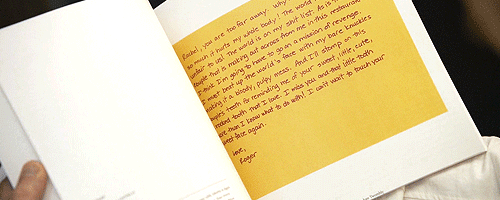 Rachel, you are too far away. Why
so much it hurts my whole body! The world
unfair to us! The world is on my shit list. As is
couple that is making out across from me in this restaurant
think I'm going to have to go on a mission of revenge.
I must beat up the world's face with my bare knuckles
making it a bloody, pulpy mess. And I'll stomp on this
teeth for reminding me of your sweet, little, cute,
crooked tooth that I love. I miss you and that little tooth
more than I know what to do with! I can't wait to touch your
sweet face again.
Love,
Roger